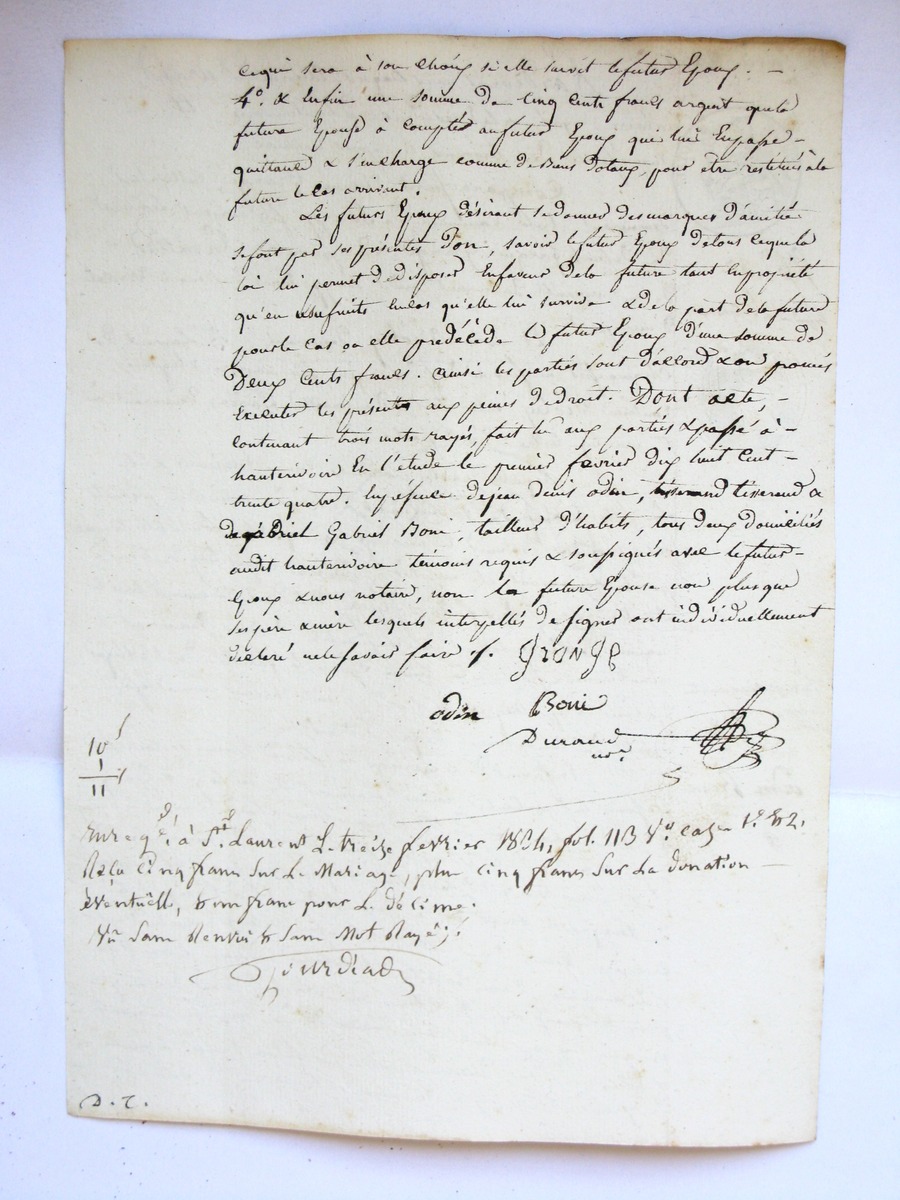 cequi sera à son choix si elle survit le futur Epoux. —
4.° & Enfin une somme de Cinq Cents francs argent que la
future Epouse à comptés au futur Epoux qui lui En passe —
quittance & s'en charge comme de Biens Dotaux, pour être restitués à la
future le Cas arrivant.
Les futurs Epoux désirant se donner des marques d'amitié
se font par ses présentes Don, savoir le futur Epoux de tous ce que la
loi lui permet de disposer En faveur de la future tant En propriété
qu'en usufruits En cas qu'elle lui survive & de la part de la future
pour le Cas où elle prédécède le futur Epoux d'une somme de
Deux Cents francs. Ainsi les parties sont d'accord & on promis
Executer les présentes aux peines de droit. Dont acte, —
contenant trois mots rayés, fait lu aux parties & passé à —
hauterivoire En l'étude le premier fevrier dix huit Cent —
trente quatre. En présence de jean denis odin, tisserand tisserand &
de gabriel Gabriel Boni, tailleur d'habits, tous deux domiciliés
audit hauterivoire témoins requis & soussignés avec le futur —
Epoux & nous notaire, non la future Epouse non plus que
ses père & mère lesquels interpellés de signer ont individuellement
déclaré ne le savoir faire ./.  GRONGE
odin  Boni
Durand
nore.
10f
1
11
Enregé. à St. Laurent le treize fevrier 1834, fol. 113 Vo. cases 1e. & 2.
Reçu Cinq francs Sur Le Mariage, plus cinq francs Sur La donation —
éventuelle, & un franc pour Le décime.
Vu Sans Renvoi & Sans Mot Rayé.
D. T.